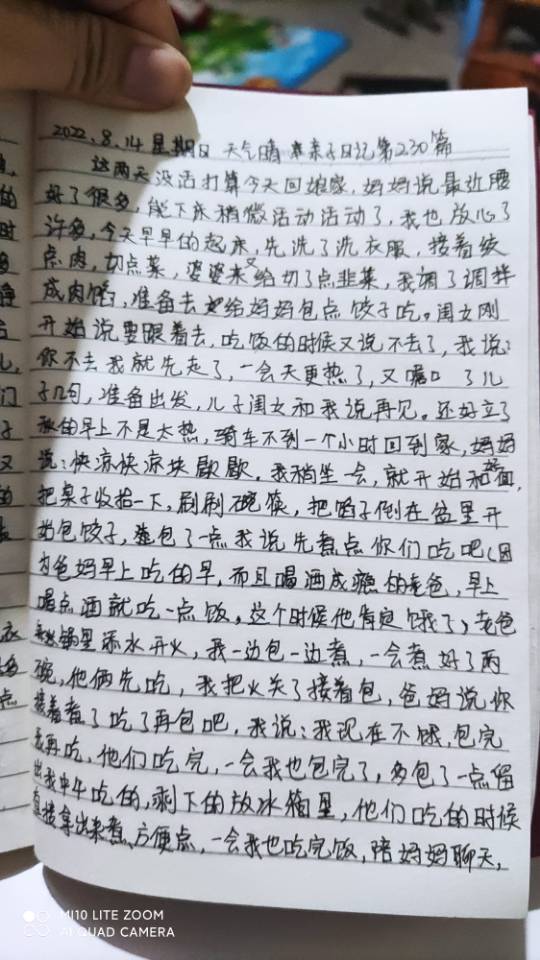 2022.8.14 星期日 天气晴 亲子日记第230篇
这两天没活打算今天回娘家，妈妈说最近腰
好了很多，能下床稍微活动活动了，我也放心了
许多，今天早早的起来，先洗了洗衣服，接着绞
点肉，切点菜，婆婆又给切了点韭菜，我调了调拌
成肉馅，准备去给妈妈包点饺子吃。闺女刚
开始说要跟着去，吃饭的时候又说不去了，我说：
你不去我就先走了，一会天更热了，又嘱 了儿
子几句，准备出发，儿子闺女和我说再见。还好立了
秋的早上不是太热，骑车不到一个小时回到家，妈妈
说：快凉快凉块歇歇。我稍坐一会，就开始和好面，
把桌子收拾一下，刷刷碗筷，把馅子倒在盆里开
始包饺子，包了一点我说先煮点你们吃吧（因
为爸妈早上吃的早，而且喝酒成瘾的老爸，早上
喝点酒就吃一点饭，这个时候他肯定饿了）老爸
锅里添水开火，我一边包一边煮，一会煮好了两
碗，他俩先吃，我把火关了接着包，爸妈说你
接着煮了吃了再包吧，我说：我现在不饿，包完
我再吃，他们吃完，一会我也包完了，多包了一点留
出我中午吃的，剩下的放冰箱里，他们吃的时候
直接拿出来煮、方便点，一会我也吃完饭，陪妈妈聊天，
MI10 LITE ZOOM
AI QUAD CAMERA